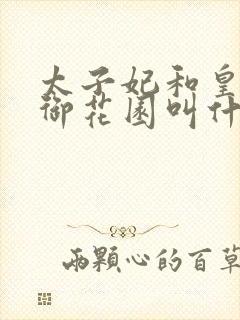 太子妃和皇
御花园叫什
两顆心的百草